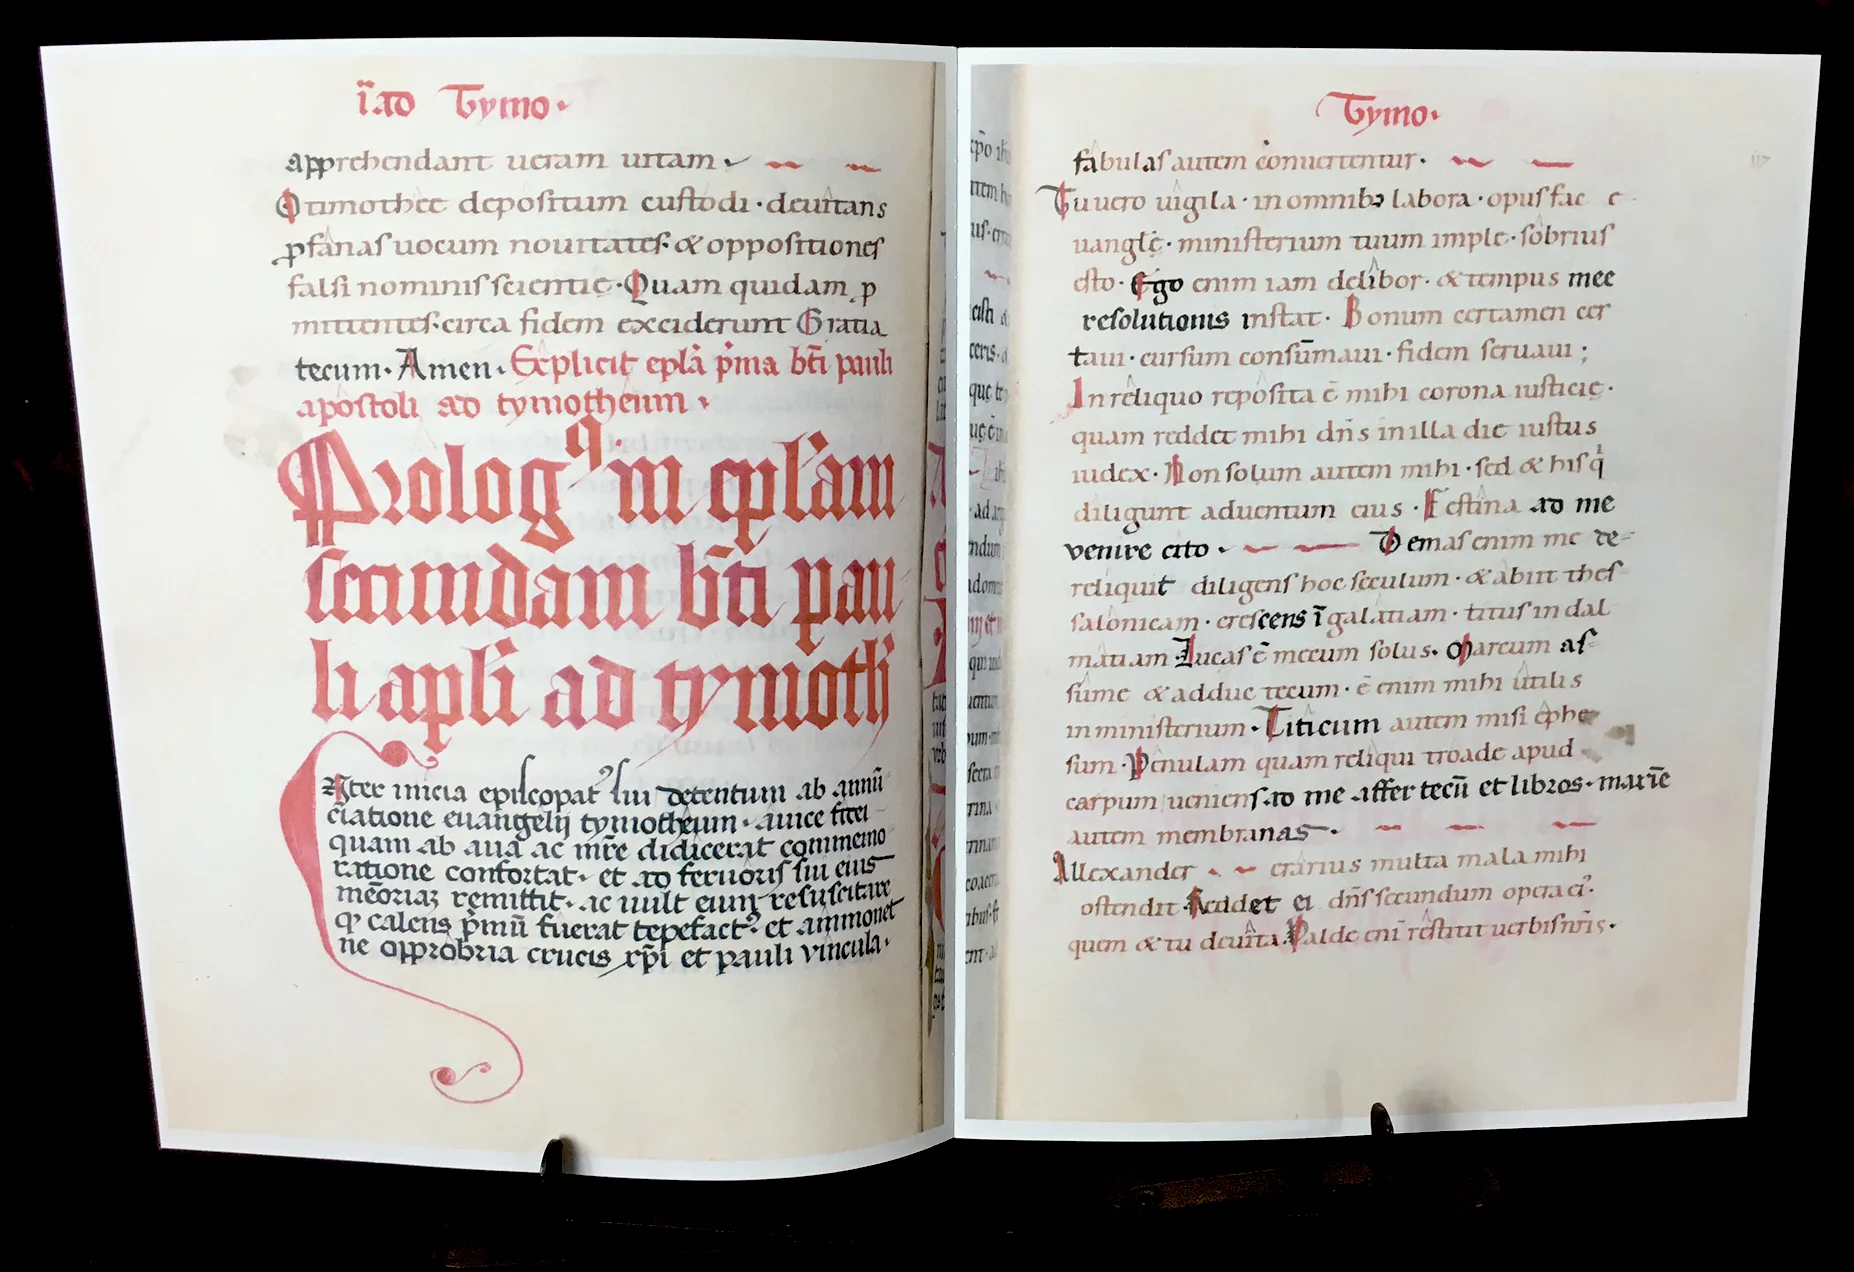 ī ad Tymo·
apprehendant ueram uitam
O timothee depositum custodi · deuitans
ꝓfanas uocum nouitates · & oppositiones
falsi nominis scientię · Quam quidam ꝓ
mittentes · circa fidem exciderunt Gratia
tecum · Amen · Explicit epl̄a p̄ma bt̄i pauli
apostoli ad tymotheum ·
Prologꝰ in epl̄am
secundam bt̄i pau
li apl̄i ad tymoth̄
Ater inicia episcopatꝰ sui detentum ab annū
ciatione euangelij tymotheum · auice fidei
quam ab aua ac mr̄e didicerat commemo
ratione confortat · et ad feruoris sui eius
mēoriaꝫ remittit · ac uult eum resuscitare
qꝫ calens p̄mū fuerat tepefactꝰ · et ammonet
ne opprobria crucis xp̄i et pauli vincula ·
Tymo·
fabulas autem conuertentur ·
Tu uero uigila · in omnibꝫ labora · opus fac e
uanglę · ministerium tuum imple · sobrius
esto · Ego enim iam delibor · & tempus mee
resolutionis instat · Bonum certamen cer
taui · cursum consūmaui · fidem seruaui ;
In reliquo reposita ē mihi corona iusticię ·
quam reddet mihi dn̄s in illa die iustus
iudex · Non solum autem mihi · sed & his q̇
diligunt aduentum eius · Festina ad me
venire cito · Demas enim me de-
reliquit diligens hoc seculum · & abiit thes-
salonicam · crescens ī galatiam · titus in dal
matiam Lucas ē mecum solus · Marcum as-
sume & adduc tecum · ē enim mihi utilis
in ministerium · Titicum autem misi ephe
sum · Penulam quam reliqui troade apud
carpum ueniens ad me affer tecū et libros · maxīe
autem membranas ·
Allexander erarius multa mala mihi
ostendit Reddet ei dn̄s secundum opera ei ·
quem & tu deuita Valde eni restitit uerbis nr̄is ·